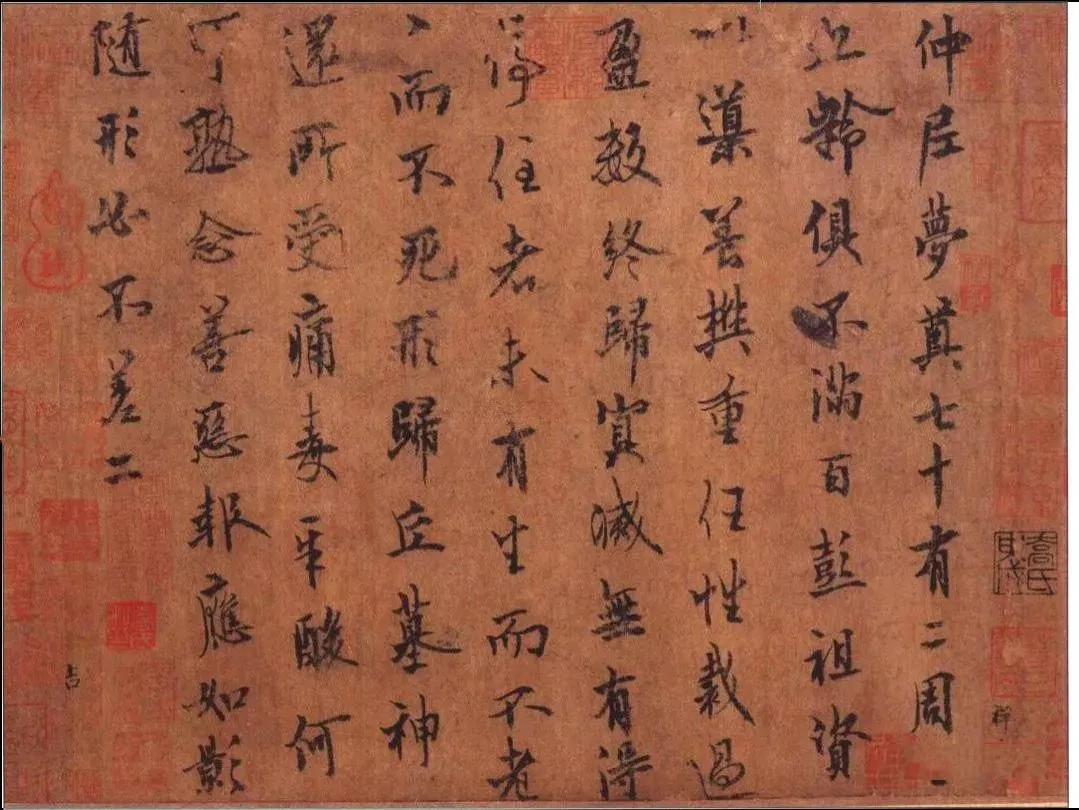 仲尼夢奠七十有二周
九齡俱不滿百彭祖資
以導養樊重任性裁過
盈數終歸冥滅無有得
停住者未有生而不老
而不死形歸丘墓神
還所受痛毒辛酸何
可熟念善惡報應如影
隨形必不差二